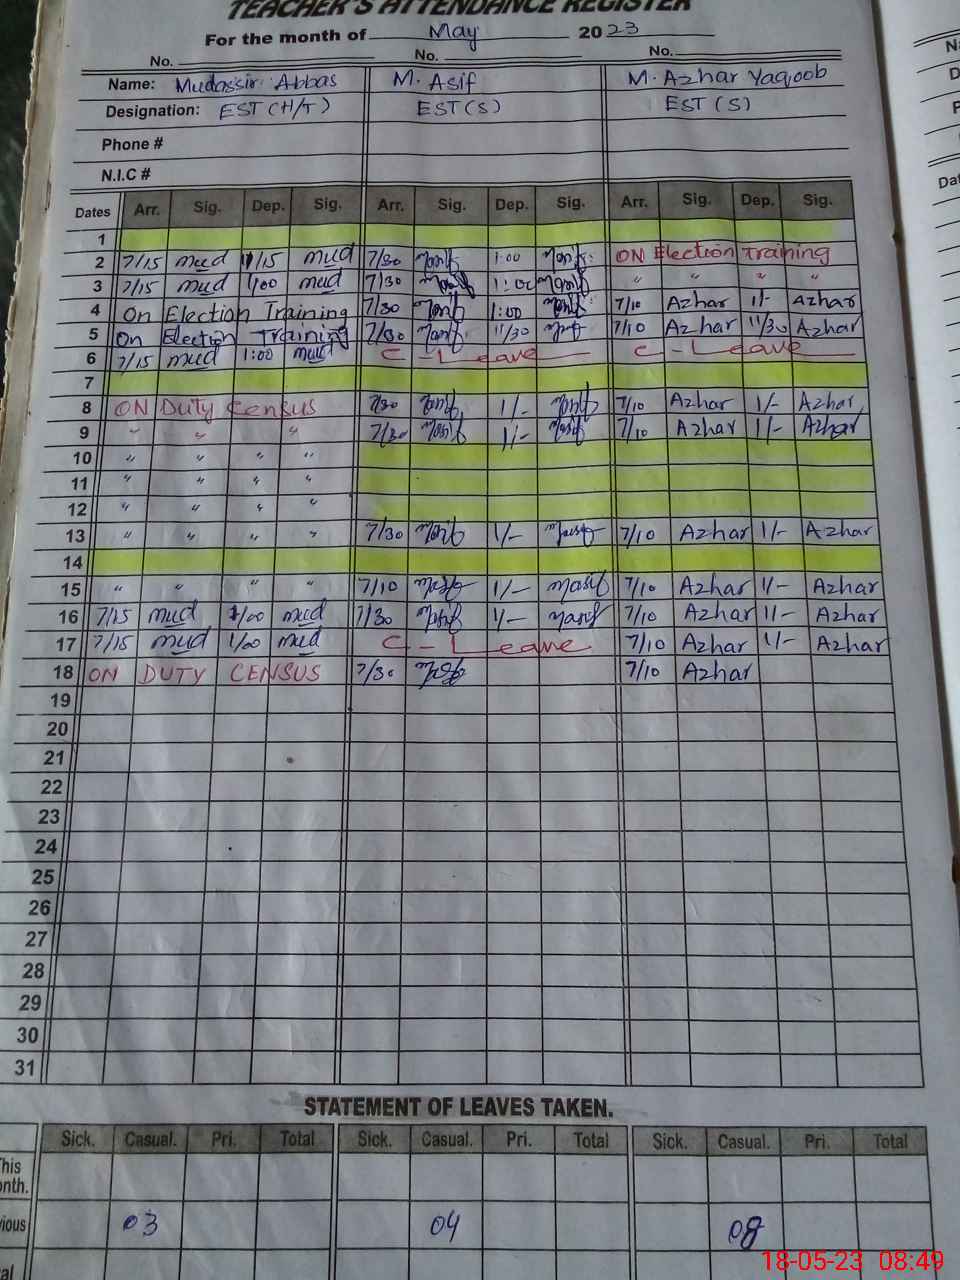 TEACHER'S ATTENDANCE REGISTER
For the month of May 2023
No. No. No.
Name: Mudassir Abbas M. Asif M. Azhar Yaqoob
Designation: EST (H/T) EST (S) EST (S)
Phone #
N.I.C #
Dates Arr. Sig. Dep. Sig. Arr. Sig. Dep. Sig. Arr. Sig. Dep. Sig.
1
2 7/15 mud 1/15 mud 7/30 1:00 ON Election Training
3 7/15 mud 1/00 mud 7/30 1:00 " " " "
4 On Election Training 7/30 1:00 7/10 Azhar 1/- Azhar
5 On Election Training 7/30 11/30 7/10 Azhar 11/30 Azhar
6 7/15 mud 1:00 mud C - Leave C - Leave
7
8 ON Duty Census 7/30 1/- 7/10 Azhar 1/- Azhar
9 " " " 7/30 1/- 7/10 Azhar 1/- Azhar
10 " " " "
11 " " " "
12 " " " "
13 " " " " 7/30 1/- 7/10 Azhar 1/- Azhar
14
15 " " " " 7/10 1/- 7/10 Azhar 1/- Azhar
16 7/15 mud 1/00 mud 7/30 1/- 7/10 Azhar 1/- Azhar
17 7/15 mud 1/00 mud C - Leave 7/10 Azhar 1/- Azhar
18 ON DUTY CENSUS 7/30 7/10 Azhar
19
20
21
22
23
24
25
26
27
28
29
30
31
STATEMENT OF LEAVES TAKEN.
Sick. Casual. Pri. Total Sick. Casual. Pri. Total Sick. Casual. Pri. Total
This
onth.
vious 03 04 08
al
18-05-23 08:49